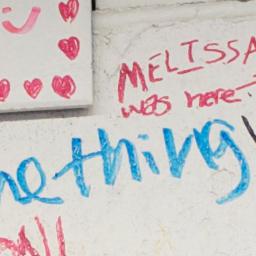 MELISSA
was here
mething